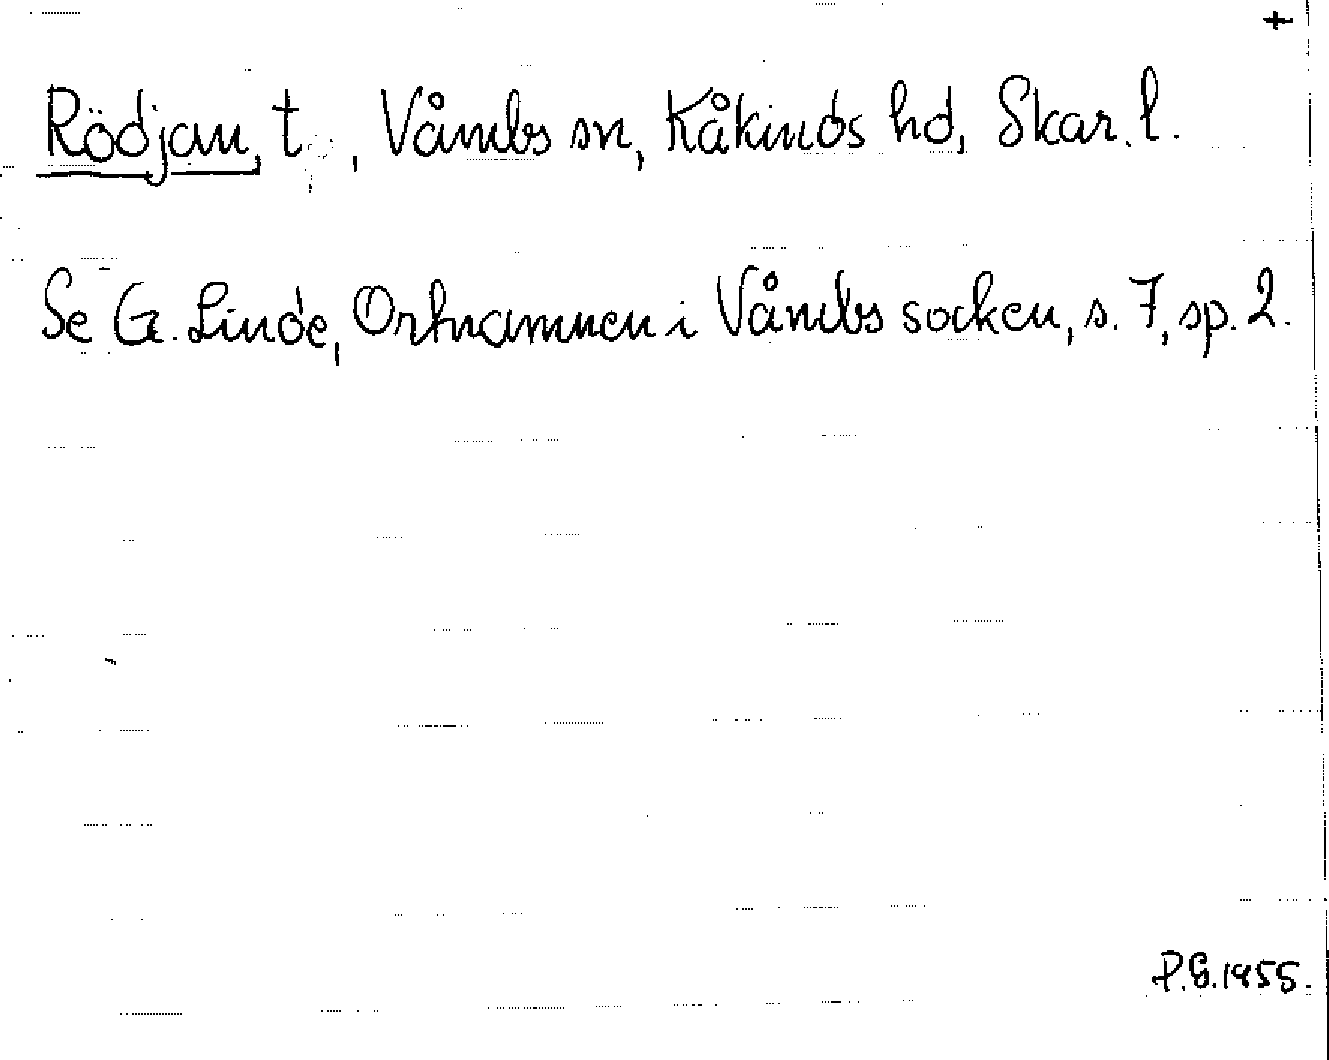 +
Rödjan, t., Våmbs sn, Kåkinds hd, Skar. l.
Se G. Linde, Ortnamnen i Våmbs socken, s. 7, sp. 2.
P.G. 1955.